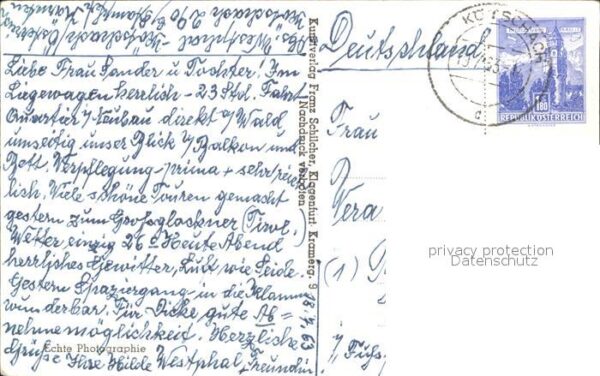 Deutschland
Liebe Frau Sander u. Tochter! Im
Liegewagen herrlich – 23 Std. Fahrt
Quartier i/Neubau direkt a/Wald
unser Blick v/Balkon und
Bett. Verpflegung – prima + sehr reich
lich. Viele schöne Touren gemacht
gestern zum Großglockner (Tirol.)
Wetter einzig 26° Heute Abend
herrliches Gewitter, Luft wie Seide.
Gestern Spaziergang – in die Klamm
wunderbar. Für Dicke gute Ab=
nehmemöglichkeit. Herzliche
Grüße Ihre Hilde Westphal
Freundin
63
Echte Photographie
Kunstverlag Franz Schilcher, Klagenfurt Kramerg. 9
Nachdruck verboten
KÖTSCHACH
1.80
REPUBLIK ÖSTERREICH
Frau
Vera
(1)
privacy protection
Datenschutz